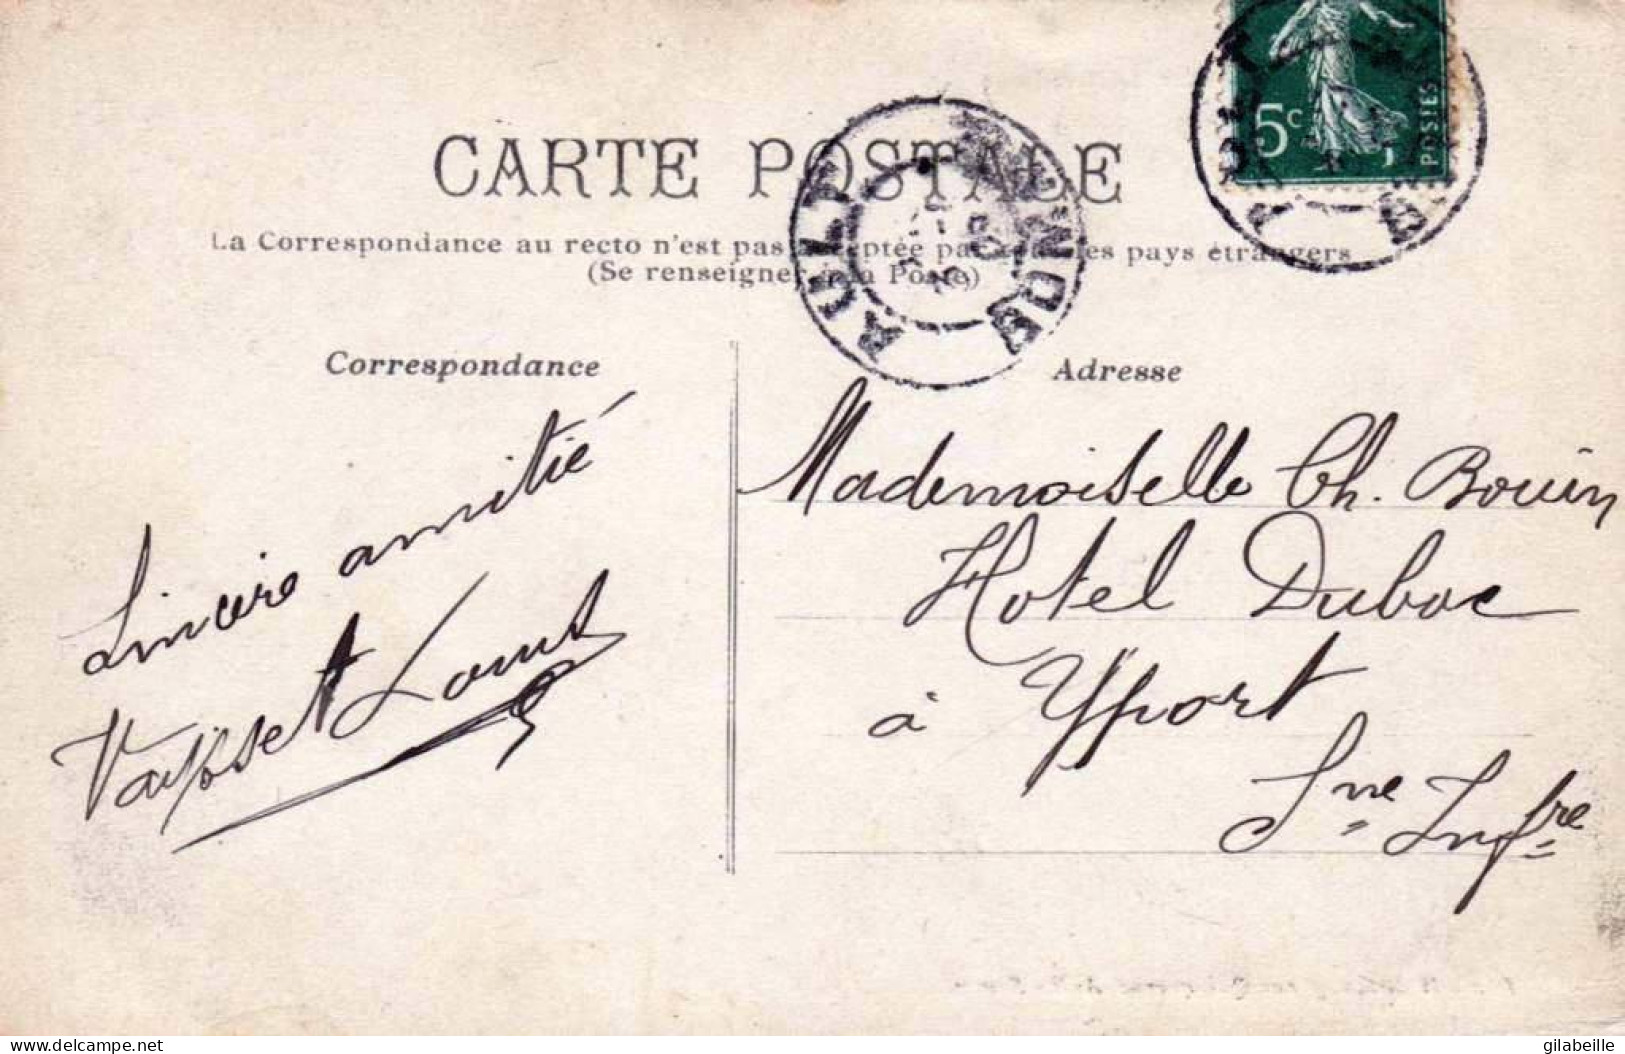 CARTE POSTALE
La Correspondance au recto n'est pas acceptée par tous les pays étrangers
(Se renseigner à la Poste)
5c
POSTES
AULT
Correspondance
Adresse
Sincère amitié
Louis
Mademoiselle Ch. Bouin
Hotel Duboc
à Yport
Sne Infre
delcampe.net
gilabeille